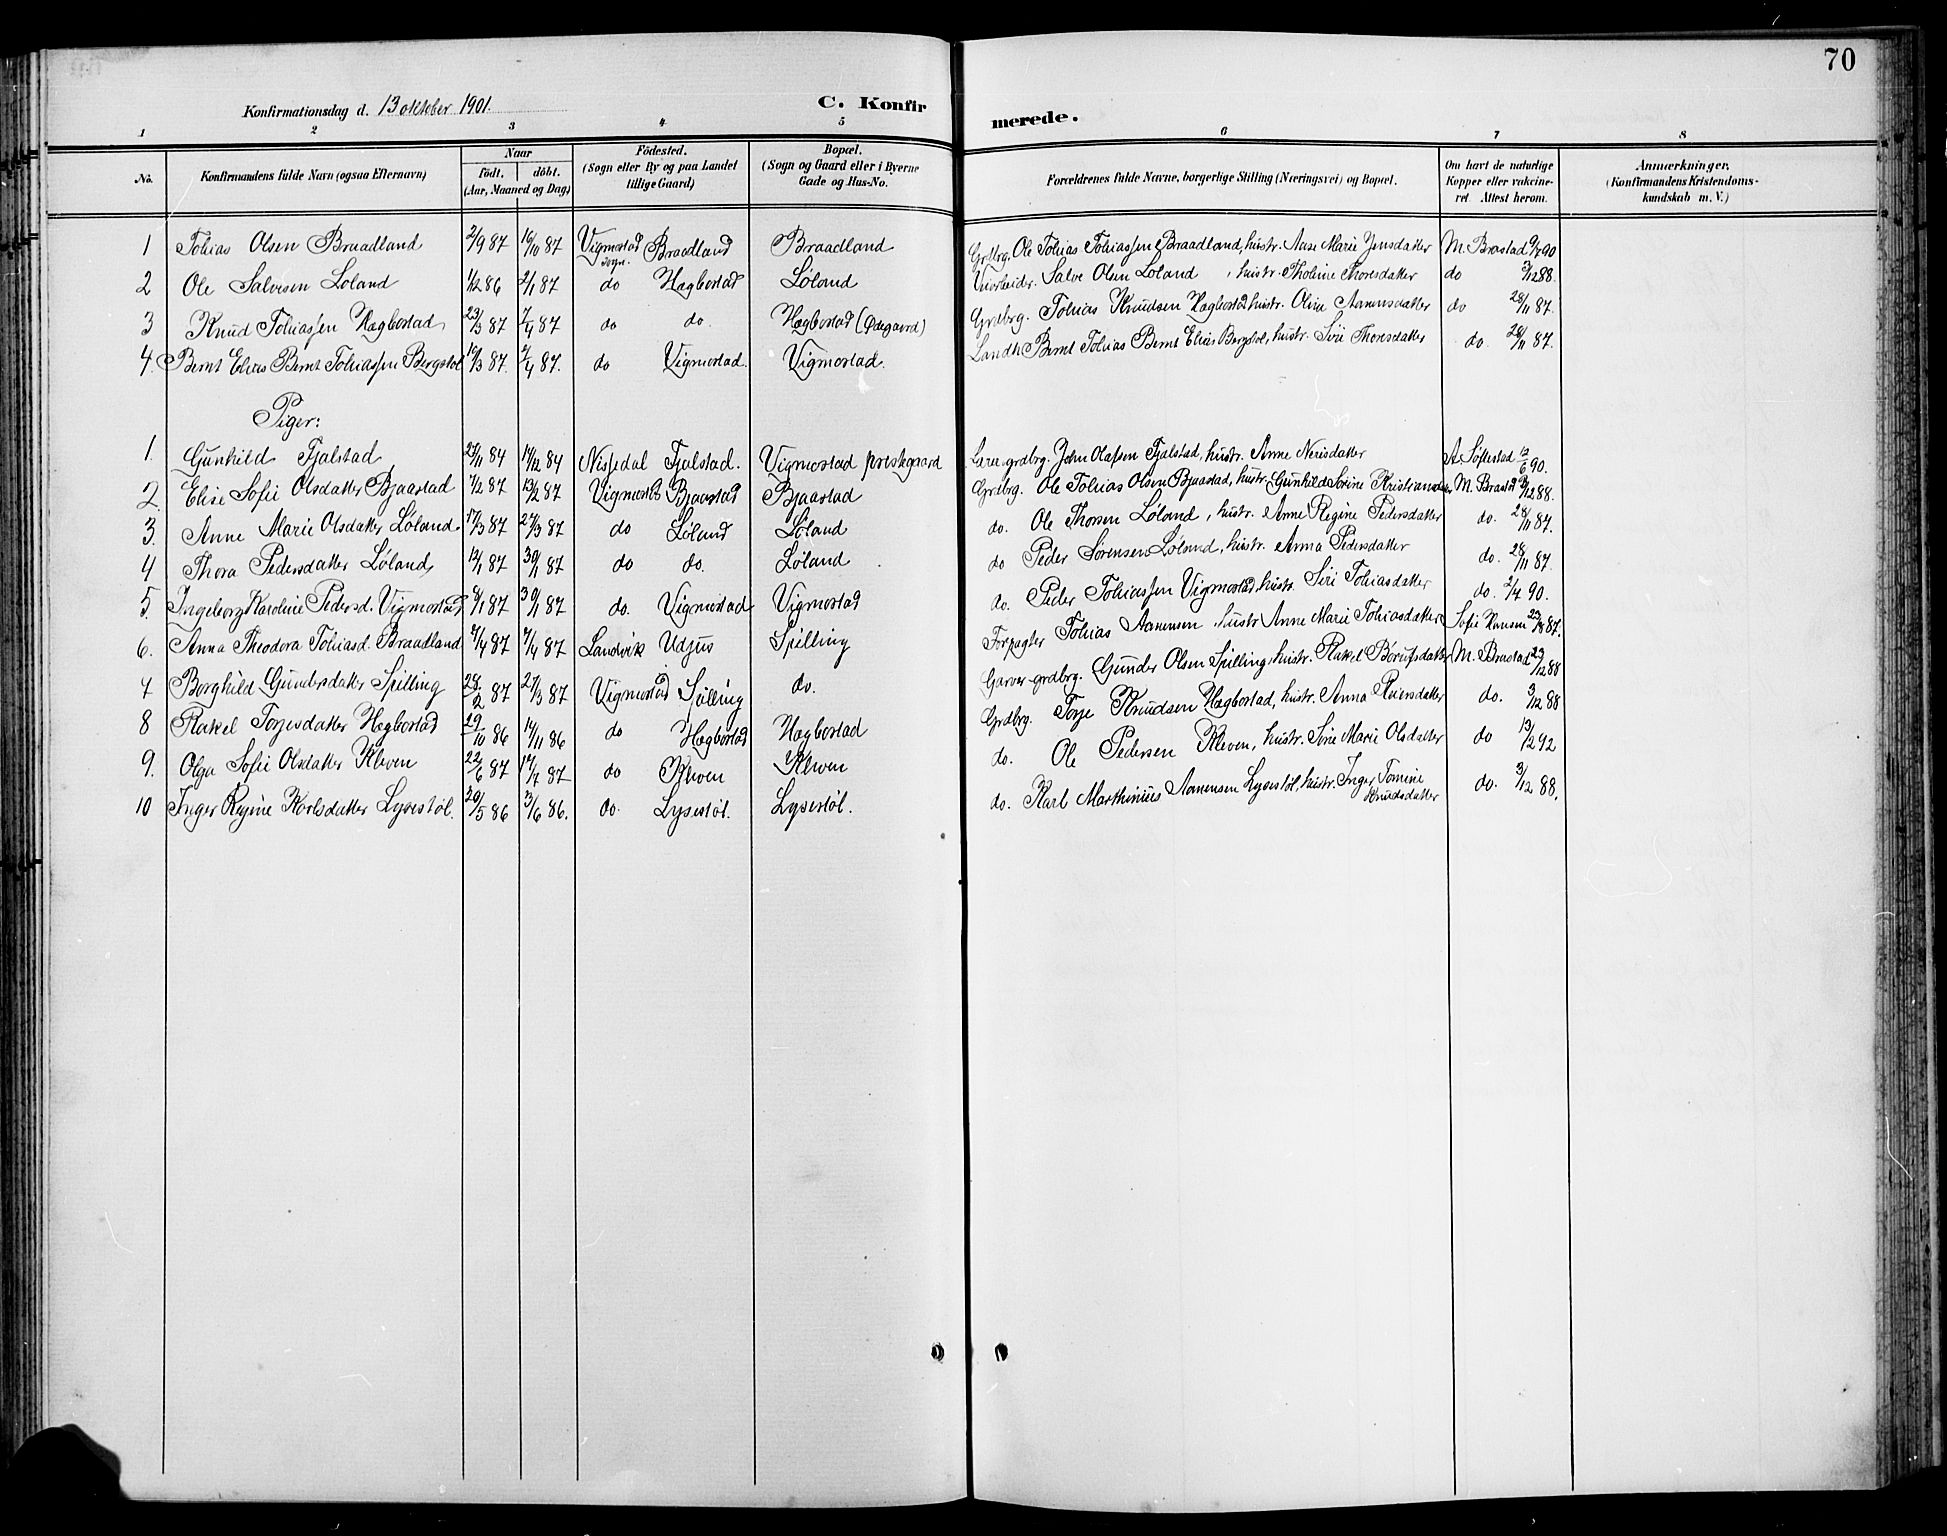 70
Konfirmationsdag d. 13 oktober 1901.
C. Konfirmerede.
1 2 3 4 5 6 7 8
No.
Konfirmandens fulde Navn (ogsaa Efternavn)
Naar
födt. döbt.
(Aar, Maaned og Dag)
Födested.
(Sogn eller By og paa Landet
tillige Gaard)
Bopæl.
(Sogn og Gaard eller i Byerne
Gade og Hus-No.
Forældrenes fulde Navne, borgerlige Stilling (Næringsvei) og Bopæl.
Om havt de naturlige
Kopper eller vakcine-
ret. Attest herom.
Anmærkninger,
(Konfirmandens Kristendoms-
kundskab m. V.)
1 Tobias Olsen Braadland 2/9 87 16/10 87 Vigmostad sogn. Braadland Braadland Grdbrg. Ole Tobias Tobiassen Braadland, hustr. Aase Marie Jensdatter M. Brastad 9/7 90
2 Ole Salvesen Løland 1/12 86 2/1 87 do Hægbostad Løland Salve Olsen Løland, hustr. Tholine Thoresdatter do 3/12 88.
3 Knud Tobiassen Hægbostad 23/3 87 7/4 87 do do. Hægbostad (Ødegaard) Grdbrg. Tobias Knudsen Hægbostad, hustr. Oline Aanensdatter do 28/11 87.
4. Bernt Elias Bernt Tobiassen Bergstøl 19/3 87. 7/4 87. do Vigmostad. Vigmostad. Landh. Bernt Tobias Bernt Elias Bergstøl, hustr. Siri Thorsdatter do. 28/11 87.
Piger:
1. Gunhild Fjalstad 27/11 84 14/12 84 Nissedal Fjalstad. Vigmostad prestegaard grdbrg. John Olafsen Fjalstad, hustr. Anne Nerisdatter A. Søftestad 12/6 90.
2. Elise Sofie Olsdatter Bjaastad 7/2 87 13/2 87 Vigmostad Bjaastad Bjaastad Grdbrg. Ole Tobias Olsen Bjaastad, hustr. Gunhild Sorine Kristiansdatter M. Brastad 3/12 88.
3. Anne Marie Olsdatter Løland. 17/3 87 27/3 87 do Løland Løland do. Ole Thorsen Løland, hustr. Anne Regine Pedersdatter do. 28/11 87.
4 Thora Pedersdatter Løland, 12/1 87 30/1 87 do do. Løland do Peder Sørensen Løland, hustr. Anna Pedersdatter do. 28/11 87.
5. Ingeborg Karoline Pedersd. Vigmostad 8/1 87 30/1 87 do. Vigmostad Vigmostad do. Peder Tobiassen Vigmostad, hustr. Siri Tobiasdatter do. 2/7 90.
6. Anna Theodora Tobiasd. Braadland 7/4 87 Landvik Udjus Spilling Forpagter Tobias Aanensen, hustr Anne Marie Tobiasdatter Sofie Hansen
7 Borghild Gundersdatter Spilling 28/2 87 27/3 87 Vigmostad Spilling do. Garver grdbrg. Gunder Olsen Spilling, hustr. Rakel Børufsdatter M. Brastad
8 Rakel Torjesdatter Hægbostad 29/10 86 14/11 86 do Hægbostad Hægbostad Grdbrg. Torje Knudsen Hægbostad, hustr. Anna Reiersdatter do. 3/12 88
9. Olga Sofie Olsdatter Kleven 22/6 87 17/7 87 do Kleven Kleven do. Ole Pedersen Kleven, hustr. Sine Marie Olsdatter do 13/2 92
10 Inger Regine Karlsdatter Lysestøl. 20/5 86 3/6 86. do. Lysestøl. Lysestøl. do. Karl Marthinius Aanensen Lysestøl, hustr. Inger Tomine Knudsdatter do. 3/12 88.